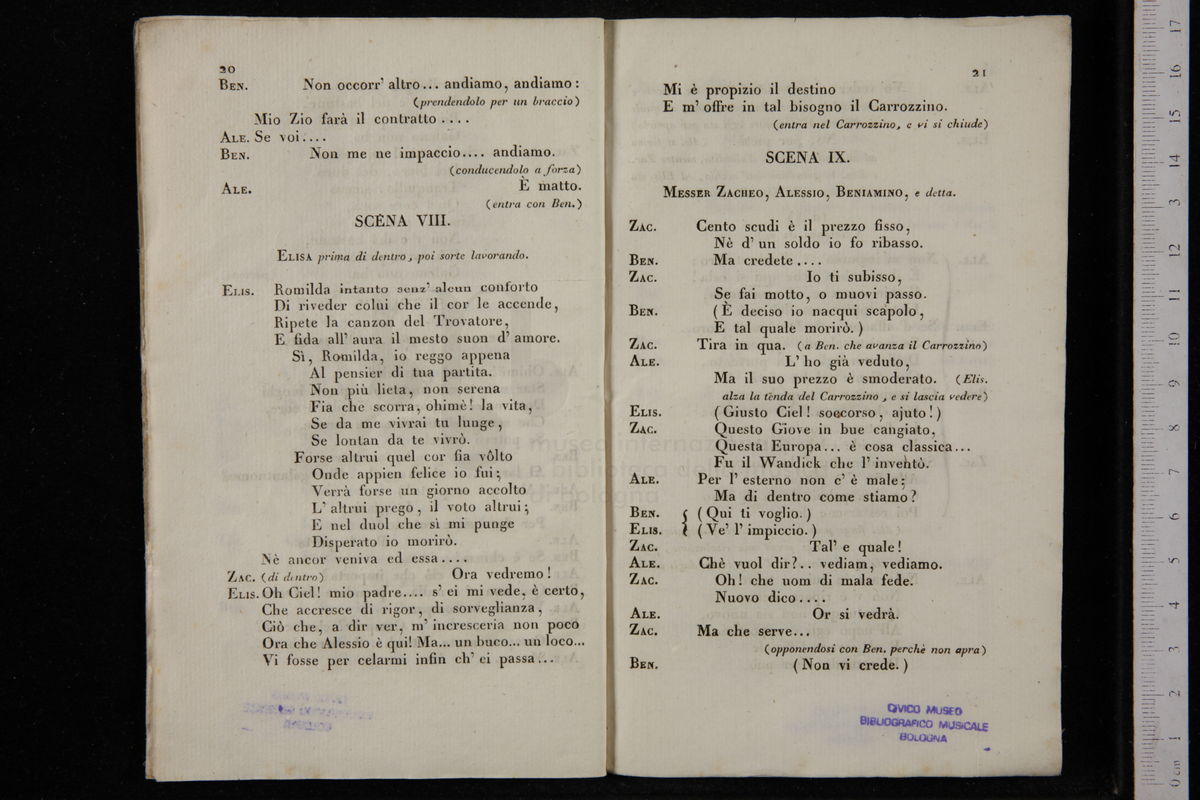 20
BEN. Non occorr' altro... andiamo, andiamo:
(prendendolo per un braccio)
Mio Zio farà il contratto ....
ALE. Se voi....
BEN. Non me ne impaccio.... andiamo.
(conducendolo a forza)
ALE. È matto.
(entra con Ben.)
SCENA VIII.
ELISA prima di dentro, poi sorte lavorando.
ELIS. Romilda intanto senz' alcun conforto
Di riveder colui che il cor le accende,
Ripete la canzon del Trovatore,
E fida all' aura il mesto suon d' amore.
Sì, Romilda, io reggo appena
Al pensier di tua partita.
Non più lieta, non serena
Fia che scorra, ohimè! la vita,
Se da me vivrai tu lunge,
Se lontan da te vivrò.
Forse altrui quel cor fia vôlto
Onde appien felice io fui;
Verrà forse un giorno accolto
L' altrui prego, il voto altrui;
E nel duol che sì mi punge
Disperato io morirò.
Nè ancor veniva ed essa....
ZAC. (di dentro) Ora vedremo!
ELIS. Oh Ciel! mio padre.... s' ei mi vede, è certo,
Che accresce di rigor, di sorveglianza,
Ciò che, a dir ver, m' incresceria non poco
Ora che Alessio è qui! Ma... un buco... un loco...
Vi fosse per celarmi infin ch' ei passa...
21
Mi è propizio il destino
E m' offre in tal bisogno il Carrozzino.
(entra nel Carrozzino, e vi si chiude)
SCENA IX.
MESSER ZACHEO, ALESSIO, BENIAMINO, e detta.
ZAC. Cento scudi è il prezzo fisso,
Nè d' un soldo io fo ribasso.
BEN. Ma credete....
ZAC. Io ti subisso,
Se fai motto, o muovi passo.
BEN. (È deciso io nacqui scapolo,
E tal quale morirò.)
ZAC. Tira in qua. (a Ben. che avanza il Carrozzino)
ALE. L' ho già veduto,
Ma il suo prezzo è smoderato. (Elis.
alza la tenda del Carrozzino, e si lascia vedere)
ELIS. (Giusto Ciel! soccorso, ajuto!)
ZAC. Questo Giove in bue cangiato,
Questa Europa... è cosa classica...
Fu il Wandick che l' inventò.
ALE. Per l' esterno non c' è male;
Ma di dentro come stiamo?
BEN. { (Qui ti voglio.)
ELIS. { (Ve' l' impiccio.)
ZAC. Tal' e quale!
ALE. Chè vuol dir?.. vediam, vediamo.
ZAC. Oh! che uom di mala fede.
Nuovo dico....
ALE. Or si vedrà.
ZAC. Ma che serve...
(opponendosi con Ben. perchè non apra)
BEN. (Non vi crede.)
CIVICO MUSEO
BIBLIOGRAFICO MUSICALE
BOLOGNA